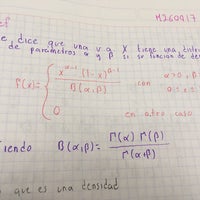 M260917
se dice que una v.a. X tiene una distri
de parámetros α y β si su función de den
f(x)= { x^{α-1} (1-x)^{β-1} / B(α,β) con α>0, β
0 ≤ x ≤
0 en otro caso
siendo B(α,β)= Γ(α) Γ(β) / Γ(α+β)
que es una densidad